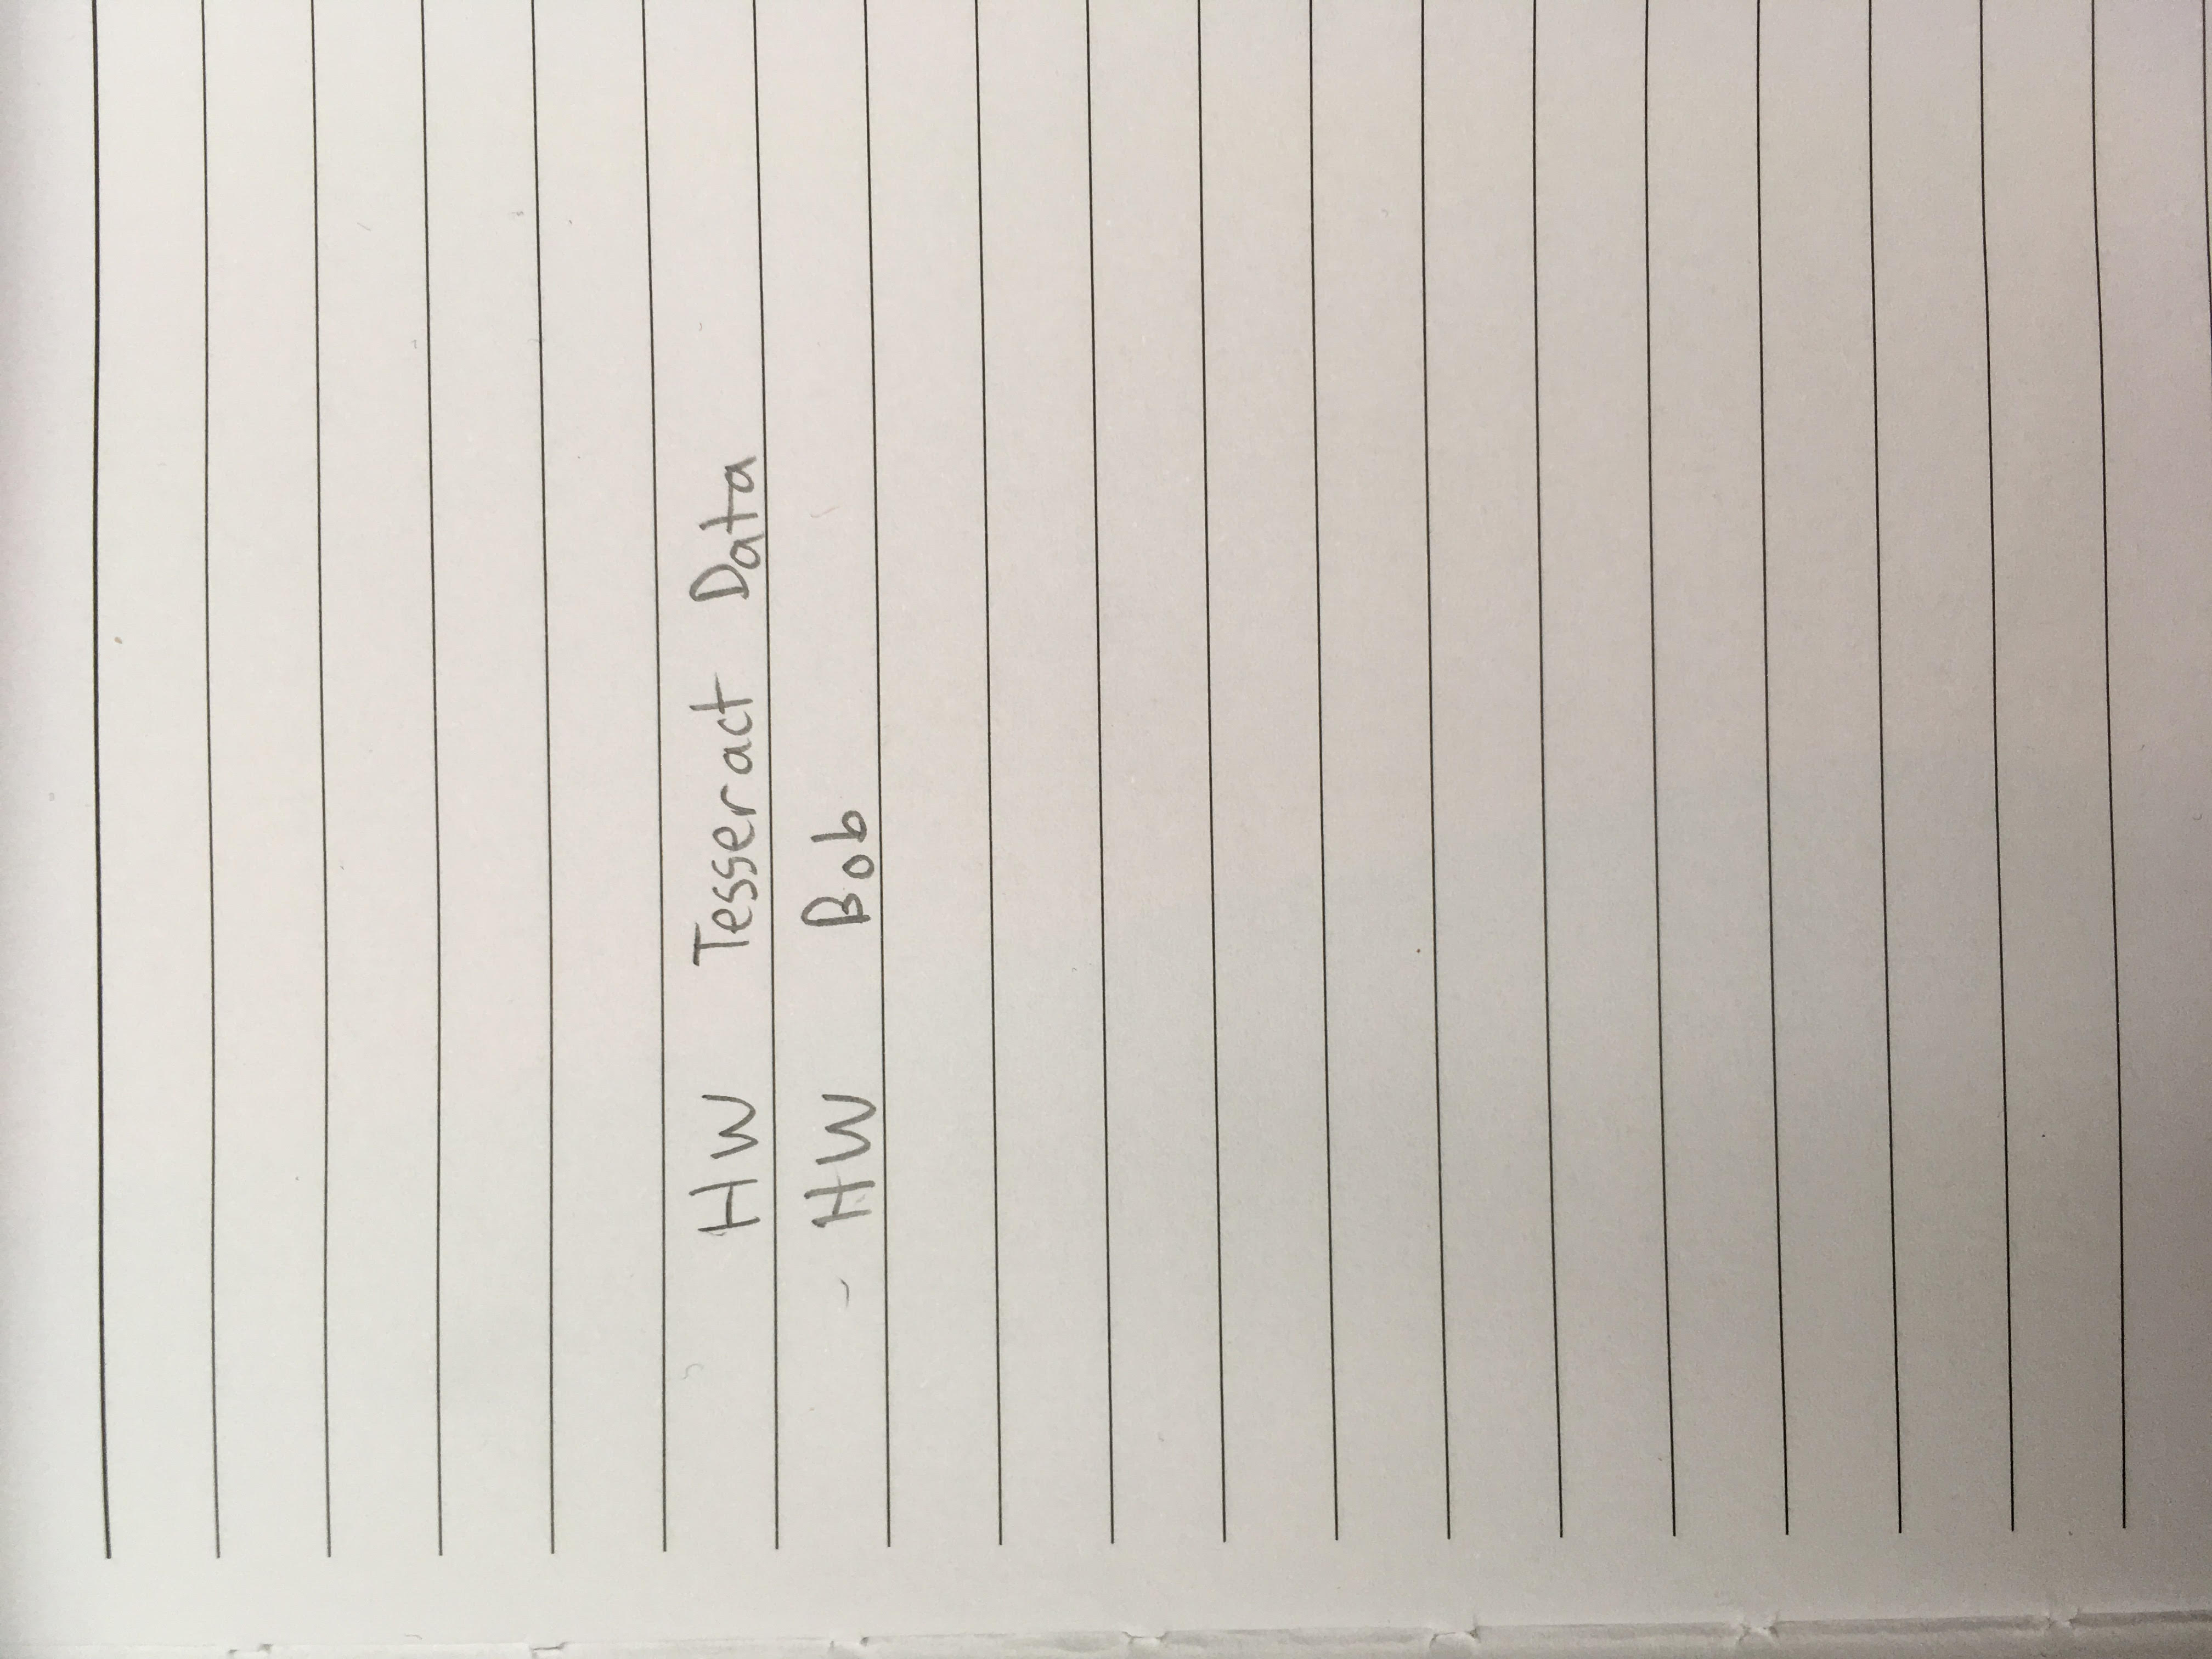 HW Tesseract Data
HW Bob